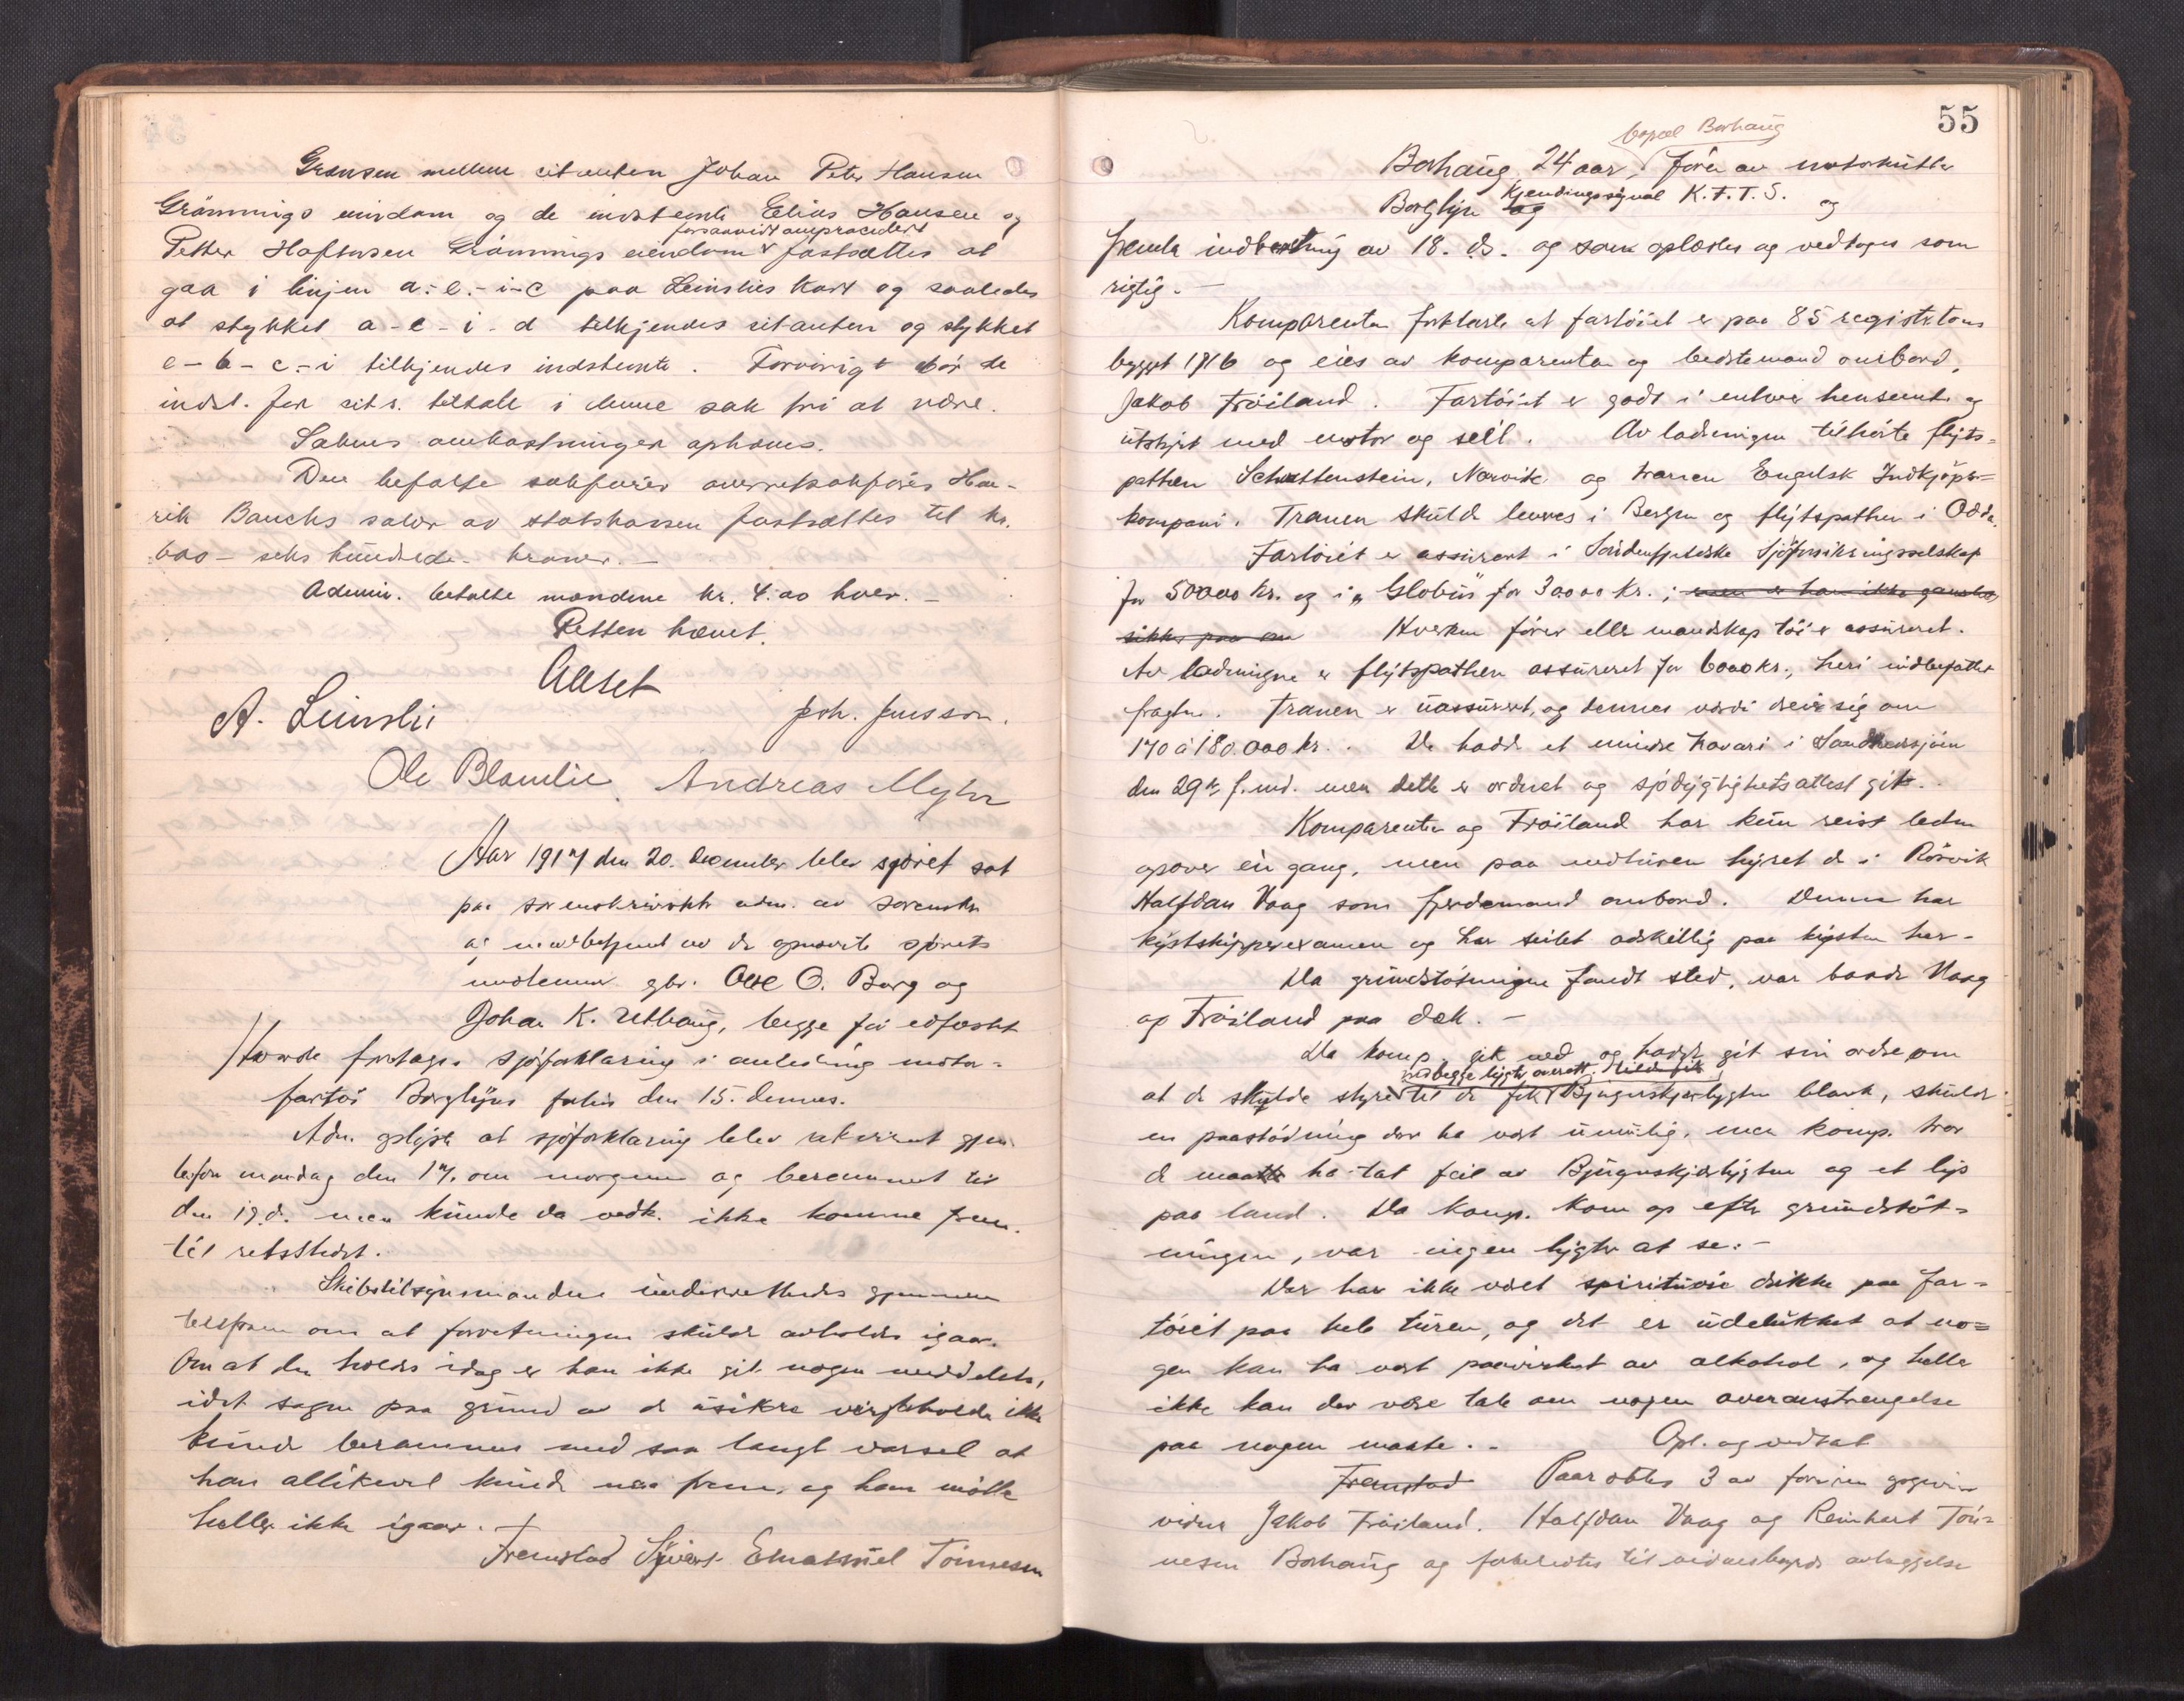 Grænsen mellem citanten Johan Peter Hansen
Grønnings eiendom og de indstevnte Elias Hansen og
forsaavidt omprocedert
Petter Haftorsen Grønnings eiendom fastsættes at
gaa i linjen a-e-i-c paa Leinslies kart og saaledes
at stykket a-e-i-d tilkjendes citanten og stykket
e-b-c-i tilkjendes indstevnte. Forøvrigt bør de
indst. for cit.s. tiltale i denne sak fri at være.
Sakens omkostninger ophæves.
Den befalte sakfører overretssakfører Hen-
rik Bauchs salær av statskassen fastsættes til kr.
600 - seks hundrede - kroner. -
Admin. betalte mændene kr. 4.00 hver. -
Retten hævet.
Alset
A. Leinslie Joh. Jensson.
Ole Blamlie. Andreas Myhr
Aar 1917 den 20. december blev sjøret sat
paa sorenskriverkt. adm. av sorenskr.
og medbetjent av de opnævnte sjørets
medlemmer gbr. Ole O. Borg og
Johan K. Uthaug, begge før edfæstet
Hvorda foretages sjøforklaring i anledning motor-
fartøi Borglyns forlis den 15. dennes.
Adm. oplyste at sjøforklaring blev rekvirert gjen.
telefon mandag den 17. om morgenen og berammet til
den 19. ds. men kunde da vedk. ikke komme frem.
til retsstedet.
Skibstilsynsmanden underrettedes gjennem
telefonen om at forretningen skulde avholdes igaar.
Om at den holdes idag er han ikke git nogen meddelelse,
idet sagen paa grund av de usikre veirforholde ikke
kunde berammes med saa langt varsel at
han allikevel kunde naa frem, og han møtte
heller ikke igaar.
Fremstod Sivert Emanuel Tønnesen
55
Borhaug
Borhaug, 24 aar, fører av motorkutter
Borglyn kjendingssignal K.F.T.S. og
fremla indberetning av 18. ds. og som oplæstes og vedtoges som
rigtig. -
Komparenten forklarte at fartøiet er paa 85 registertons
bygget 1916 og eies av komparenten og bedstemand ombord,
Jakob Frøiland. Fartøiet er godt i enhver henseende og
utstyrt med motor og seil. Av ladningen tilhørte flyts-
pathen Schattenstein, Narvik og tranen Engelsk Indkjøps-
kompani. Tranen skulde leveres i Bergen og flytspathen i Odda.
Fartøiet er assurert i Søndenfjeldske Sjøforsikringsselskap
for 50000 kr. og i "Globus" for 30000 kr.; men er han ikke ganske
sikker paa om Hverken fører eller mandskap tøi er assureret.
Av ladningen er flytspathen assureret for 6000 kr., heri indbefattet
fragten. Tranen er uassurert, og dennes værdi dreier sig om
170 à 180.000 kr. De hadde et mindre havari i Sandnessjøen
den 29de f. md. men dette er ordnet og sjødygtighetsattest git.
Komparenten og Frøiland har kun reist leden
opover én gang, men paa nedturen hyret de i Rørvik
Halfdan Vaag som færdemand ombord. Denne har
kystskipperexamen og har seilet adskillig paa kysten her. -
Da grundstøtningen fandt sted, var baade Vaag
og Frøiland paa dæk. -
Da komp. gik ned og hadde git sin ordre om
med begge lygter overett.
at de skulde styre til de fik Bjugnskjærlygten blank, skulde
en paastødning der ha vært umulig, men komp. tror
de maatte ha tat feil av Bjugnskjærlygten og et lys
paa land. Da komp. kom op efter grundstøt-
ningen, var ingen lygter at se. -
Der har ikke været spirituøse drikke paa far-
tøiet paa hele turen, og det er udelukket at no-
gen kan ha vært paavirket av alkohol, og heller
ikke kan der være tale om nogen overanstrengelse
paa nogen maate. - Opl. og vedtat
Fremstod Paaraabtes 3 av føreren opgivne
vidner Jakob Frøiland, Halfdan Vaag og Reinhert Tøn-
nesen Borhaug og foreholdtes til vidnesbyrds avlæggelse